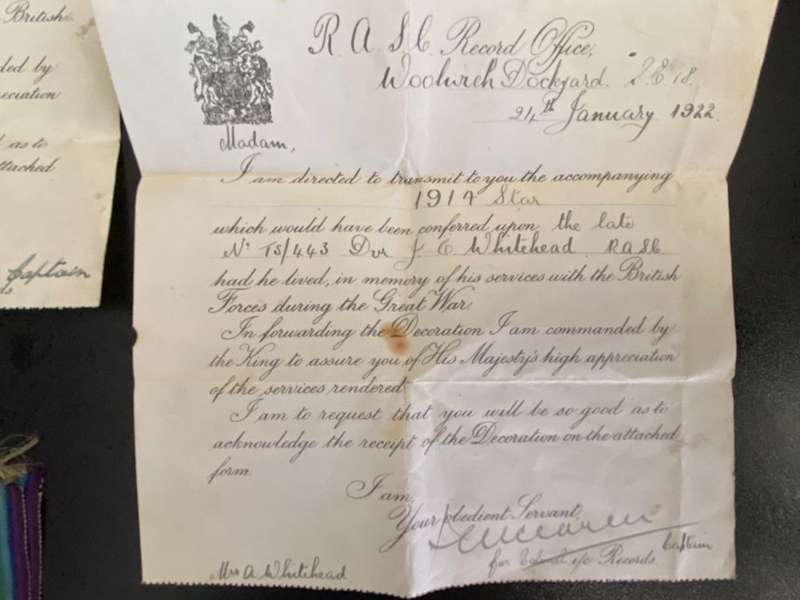 British
ded by
eciation
d as to
ttached
Captain
ds
R.A.S.C. Record Office,
Woolwich Dockyard. S.E.18.
24th January 1922.
Madam,
I am directed to transmit to you the accompanying
1914 Star
which would have been conferred upon the late
No TS/443 Dvr J E Whitehead R.A.S.C
had he lived, in memory of his services with the British
Forces during the Great War.
In forwarding the Decoration I am commanded by
the King to assure you of His Majesty's high appreciation
of the services rendered.
I am to request that you will be so good as to
acknowledge the receipt of the Decoration on the attached
form.
I am,
Your obedient Servant,
Captain
for Colonel i/c Records
Mrs A Whitehead